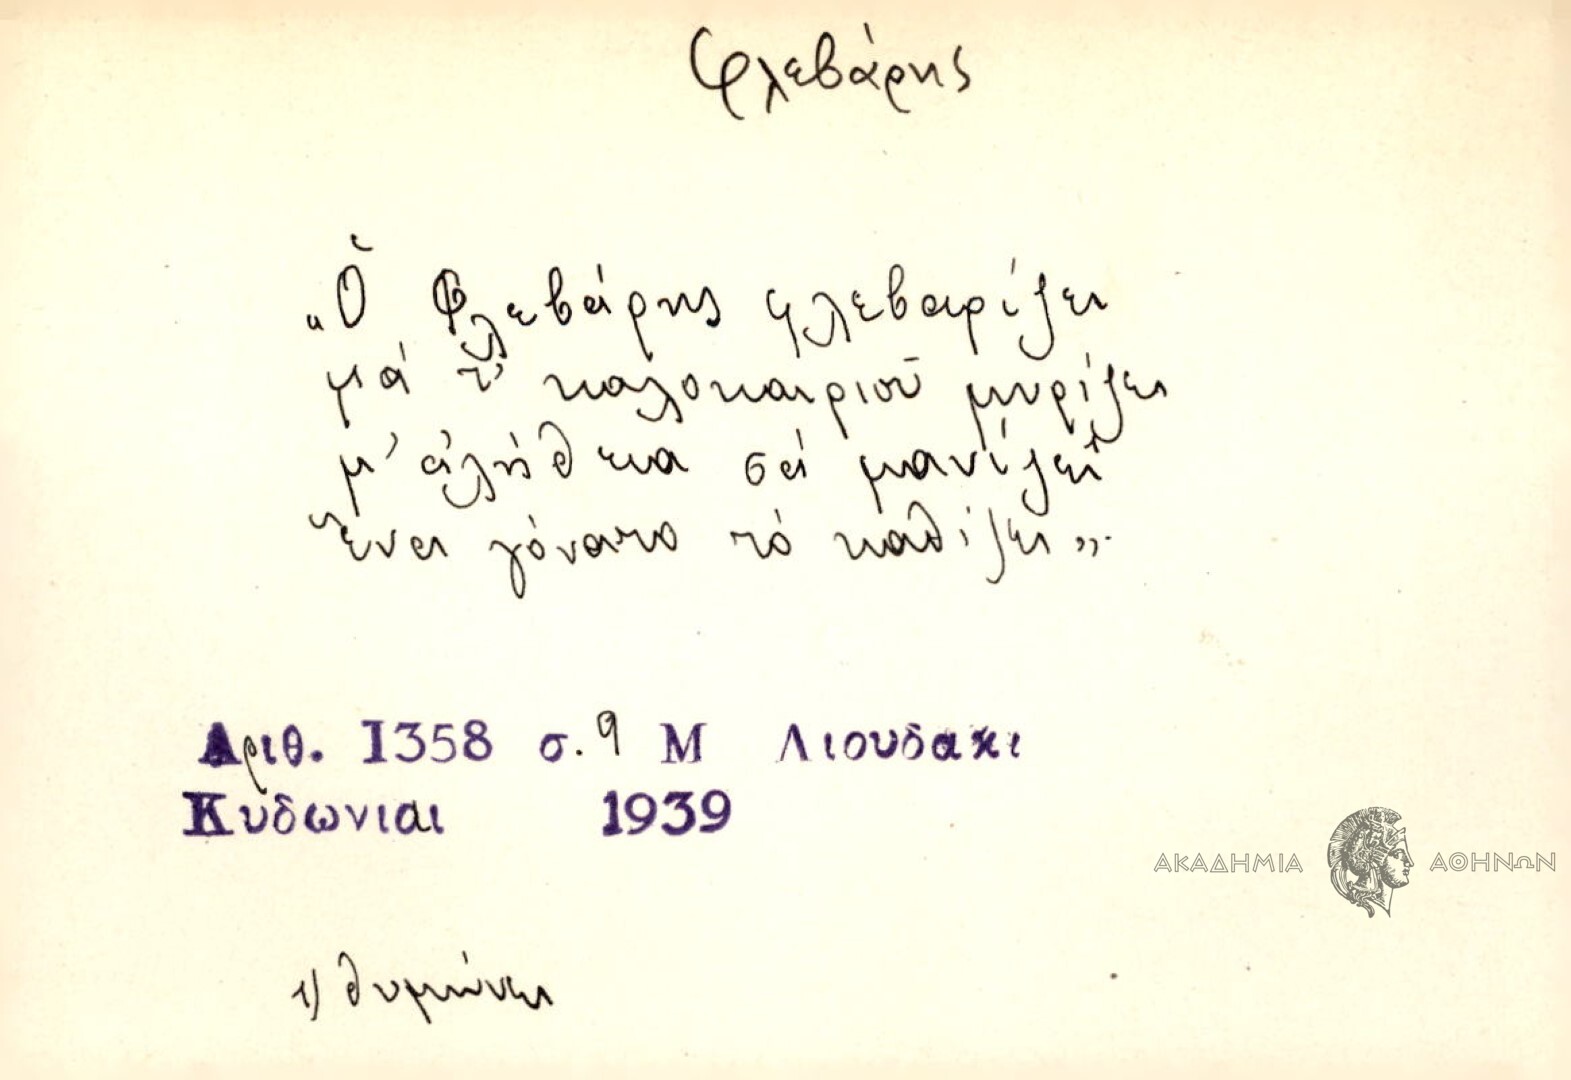 Φλεβάρης
„Ὁ Φλεβάρης φλεβαρίζει
μά τ' καλοκαιριοῦ μυρίζει
μ' ἀλήθεια σά μανίζει¹
ἕνα γόνατο τό καθίζει”.
Αριθ. 1358 σ. 9 Μ Λιουδακι
Κυδωνιαι 1939
ΑΚΑΔΗΜΙΑ ΑΘΗΝΩΝ
1) θυμώνει